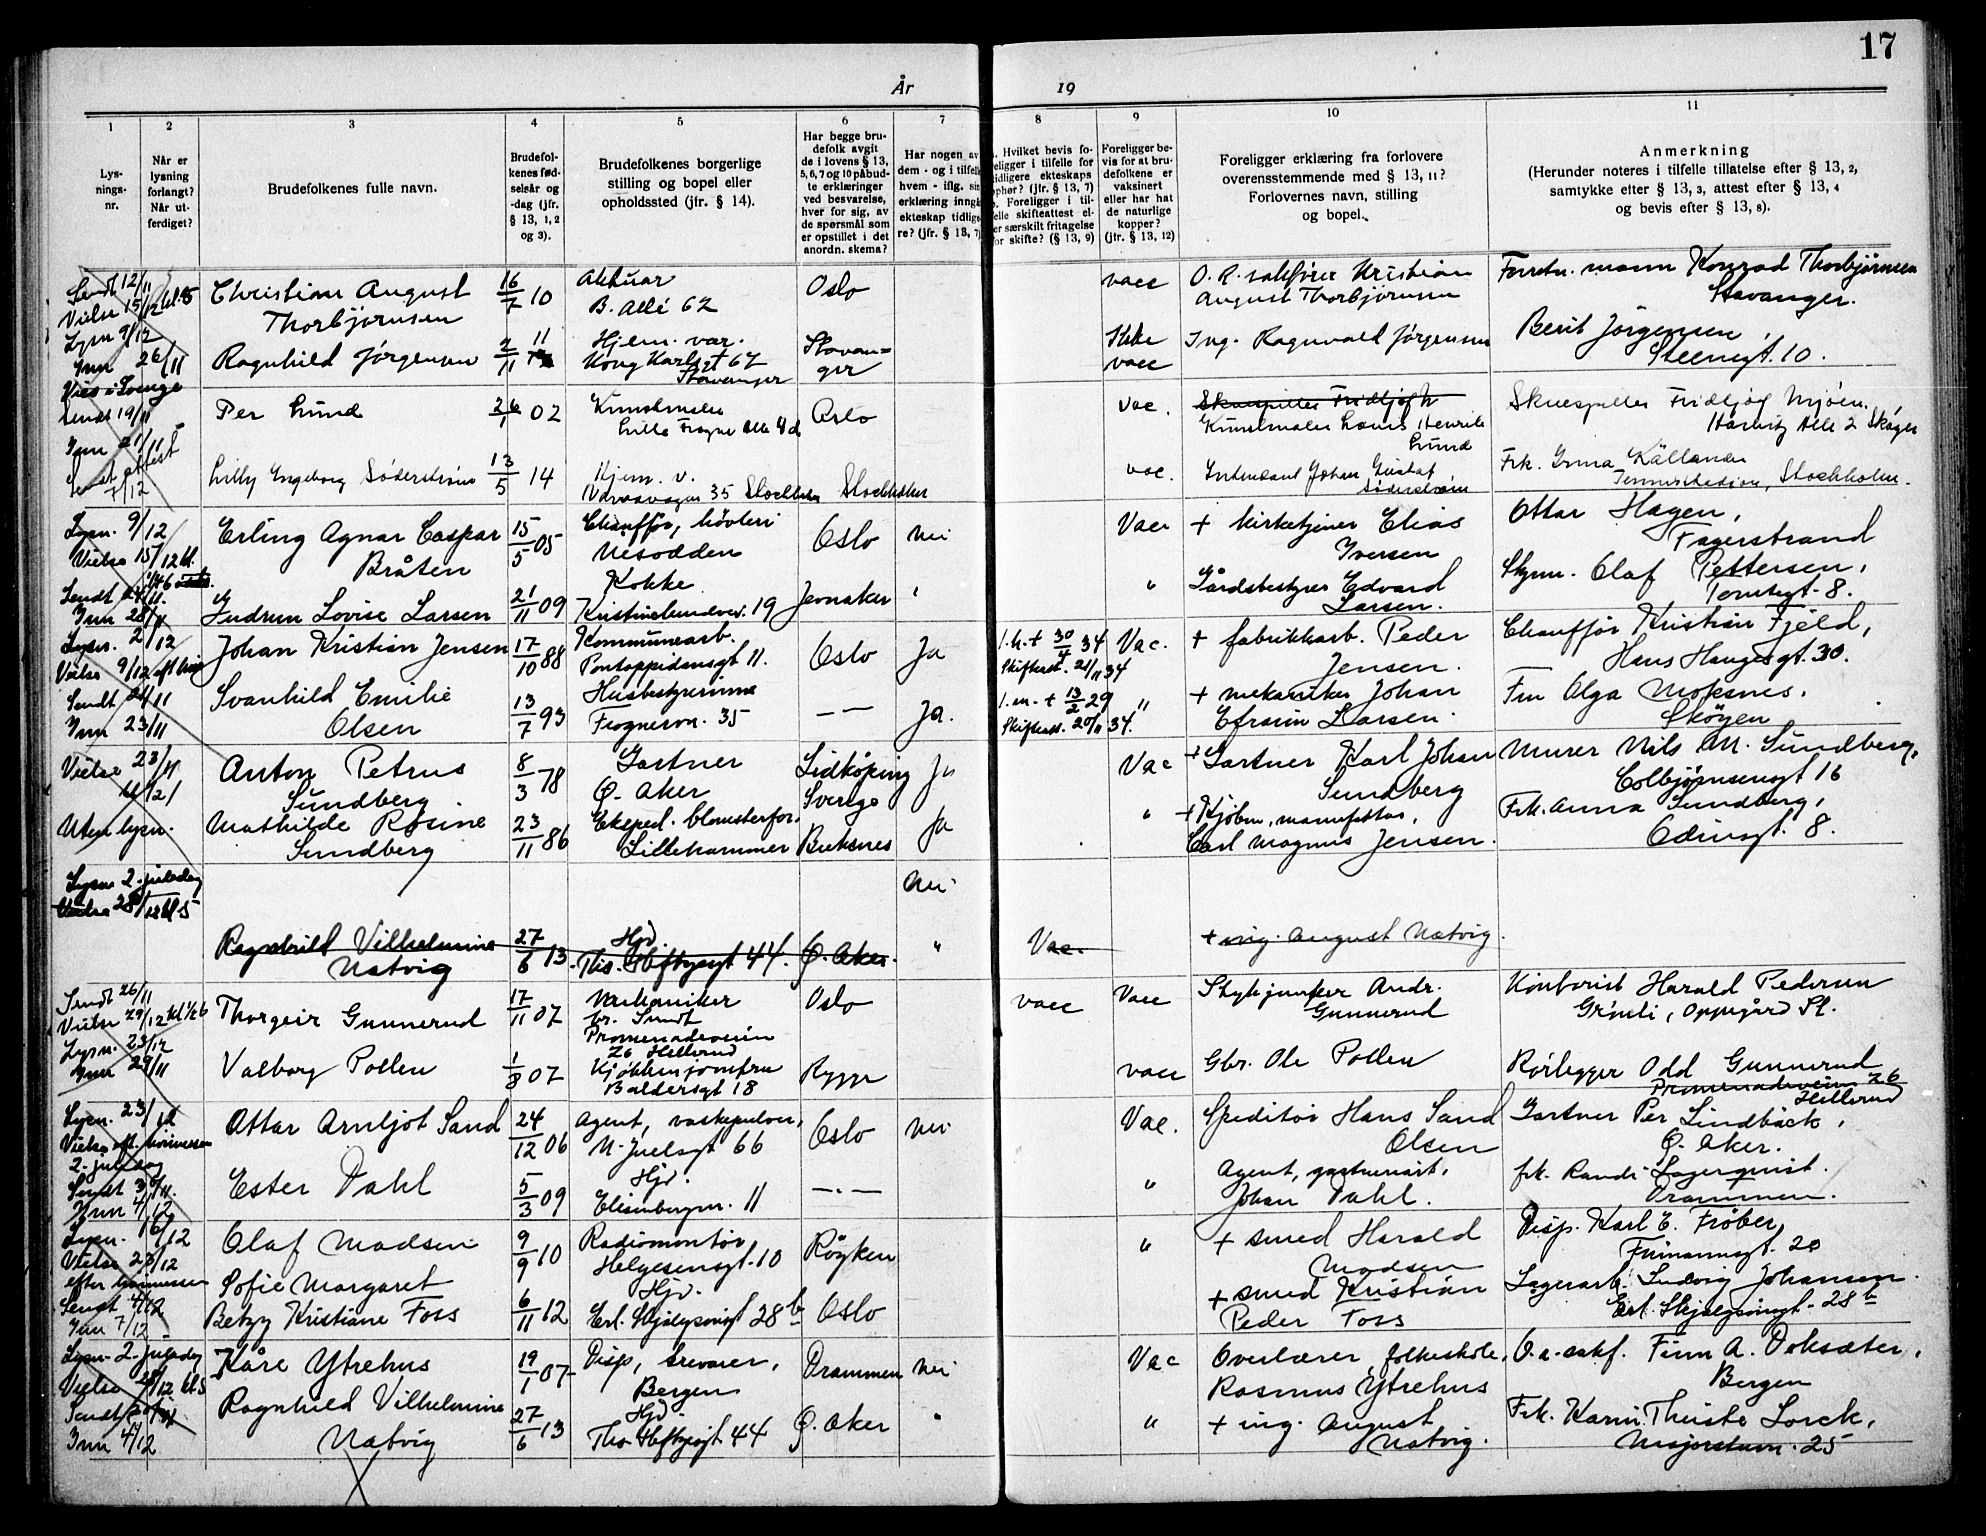 17
År 19
1 2 3 4 5 6 7 8 9 10 11
Lys-
nings-
nr.
Når er
lysning
forlangt?
Når ut-
ferdiget?
Brudefolkenes fulle navn.
Brudefol-
kenes fød-
selsår og
-dag (jfr.
§ 13, 1, 2
og 3).
Brudefolkenes borgerlige
stilling og bopel eller
opholdssted (jfr. § 14).
Har begge bru-
defolk avgit
de i lovens § 13,
5, 6, 7 og 10 påbud-
te erklæringer
ved besvarelse,
hver for sig, av
de spørsmål som
er opstillet i det
anordn. skema?
Har nogen av
dem - og i tilfelle
hvem - iflg. sin
erklæring inngå
ekteskap tidlige
re? (jfr. § 13, 7)
Hvilket bevis fo-
religger i tilfelle for
tidligere ekteskaps
ophør? (jfr. § 13, 7)
Foreligger i til-
felle skifteattest el-
er særskilt fritagelse
for skifte? (§ 13, 9)
Foreligger be-
vis for at bru-
defolkene er
vaksinert
eller har hat
de naturlige
kopper?
(jfr. § 13, 12)
Foreligger erklæring fra forlovere
overensstemmende med § 13, 11?
Forlovernes navn, stilling
og bopel.
Anmerkning
(Herunder noteres i tilfelle tillatelse efter § 13, 2,
samtykke efter § 13, 3, attest efter § 13, 4
og bevis efter § 13, 8).
Sendt 12/11
Vielse 15/12 kl. 5
Lysn 9/12
Inn 26/11
Christian August 16/7 10 Aktuar Oslo vacc O. R. sakfører Kristian Forretn. mann Konrad Thorbjørnsen
Thorbjørnsen B. Allé 62 August Thorbjørnsen Stavanger.
Ragnhild Jørgensen 2/11 11 Hjem. var. Stavan= Ikke Ing. Ragnvald Jørgensen Berit Jørgensen,
Kong Karls gt 67 ger vacc Steensgt. 10.
Stavanger
Sendt 19/11
Inn 21/11
Sendt attest
7/12
Per Lund 26/1 02 Kunstmaler Oslo vac. Skuespiller Fridtjof M Skuespiller Fridtjof Mjøen
Lille Frogner Alle 4d Kunstmaler Louis Henrik Harbitz Alle 2 Skøyen
Lund
Lilly Ingeborg Söderström 13/5 14 Hjem. v. vac. Intendant Johan Gustaf Frk. Källander
35 Stockholm Stockholm Söderström Stockholm.
Lysn. 9/12
Vielse 15/12 kl.
Sendt 24/11
Inn 28/11
Erling Agnar Caspar 15/5 05 Chauffør, Oslo Nei Vacc + kirketjener Elias Ottar Hagen,
Bråten Nesodden Iversen Fagerstrand
Gudrun Lovise Larsen 21/11 09 Kokke Jevnaker " " Gårdsbestyrer Edvard Olaf Pettersen,
Kristinelundvei. 19 Larsen. Tomtegt. 8.
Lysn. 2/12
Vielse 9/12
Sendt 21/11
Inn 23/11
Johan Kristian Jensen 17/10 88 Kommunearb. Oslo Ja 1. h. + 30/4 34 Vac. + fabrikkarb. Peder Chauffør Kristian Fjeld,
Pontoppidansgt 11. Skifteat. 21/11 34 Jensen. Hans Haugesgt. 30.
Svanhild Emilie 13/7 93 Husbestyrerinne — — Ja. 1. m. + 13/2 29 " + mekaniker Johan Fru Olga Moksnes.
Olsen Frognervn. 35 Skifteat. 20/11 34. Efraim Larsen. Skøyen
Vielse 23/11
Uten lysn.
Anton Petrus 8/3 78 Gartner Lidköping Ja Vac + Gartner Karl Johan Murer Nils M. Sundberg,
Sundberg. Ø. Aker Sverige Sundberg Colbjørnsensgt 16
Mathilde Rosine 23/11 86 Eksped. blomsterfor. Buksnes Ja " + Kjøbm, manufaktur, Frk. Anna Sundberg,
Sundberg Lillehammer Carl Magnus Jensen. Odinsgt. 8.
Lysn 2. juledag Nei
Vielse 28/12 kl 5
Ragnhild Vilhelmine 27/6 13. Hjd Ø. Aker. " Vac. + ing. August Natvig.
Natvig Ths. Heftyesgt 44.
Sendt 26/11
Vielse 29/12
Lysn. 23/12
Inn 29/11
Thorgeir Gunnerud 17/11 07 Mekaniker Oslo vacc Vacc Andr. Kontorist Harald Pedersen
Promenadeveien Gunnerud Oppegård St.
26 Hellerud
Valborg Pollen 1/8 07 Kjøkkenjomfru Rygge vacc Gbr. Ole Pollen Rørlegger Odd Gunnerud
Baldersgt 18 Promenadeveien 26
Hellerud
Lysn. 23/12
2. juledag
Sendt 30/11.
Inn 4/12
Ottar Arnljot Sand 24/12 06 Agent, vaskepulver, Oslo Nei Vac. Speditør Hans Sand Gartner Per Lindbäck,
N. Juelsgt 66 Olsen Ø. Aker.
Ester Dahl 5/3 09 Hjd. —.— " Agent, frk. Randi Lagerqvist.
Elisenbergvn. 11 Johan Dahl. Drammen.
Lysn. 16/12
Vielse 23/12
Sendt 4/12
Inn 7/12
Olaf Madsen 9/9 10 Radiomontør Røyken " + smed Harald Disp. Karl E. Frøber,
Helgesensgt. 10 Madsen 20
Sofie Margaret Hjd. + smed Kristian Lagerarb. Ludvig Johansen.
Betzy Kristiane Foss 6/11 12 Erl. Skjalgsonsgt 28 b Oslo Peder Foss Erl. Skjalgsonsgt. 28 b
Lysn. 2. juledag
Vielse 28/12 kl. 5
Inn 4/12
Kåre Ytrehus 19/1 07 Disp, trevarer, Drammen Nei Vac Overlærer, folkeskole, O. r. sakf. Finn A. Doksæter,
Bergen Rasmus Ytrehus Bergen
Ragnhild Vilhelmine 27/6 13 Hjd. Ø. Aker " " + ing. August Frk. Karin Theiste Lorck,
Natvig Ths. Heftyesgt 44 Natvig. Majorstuvn. 25